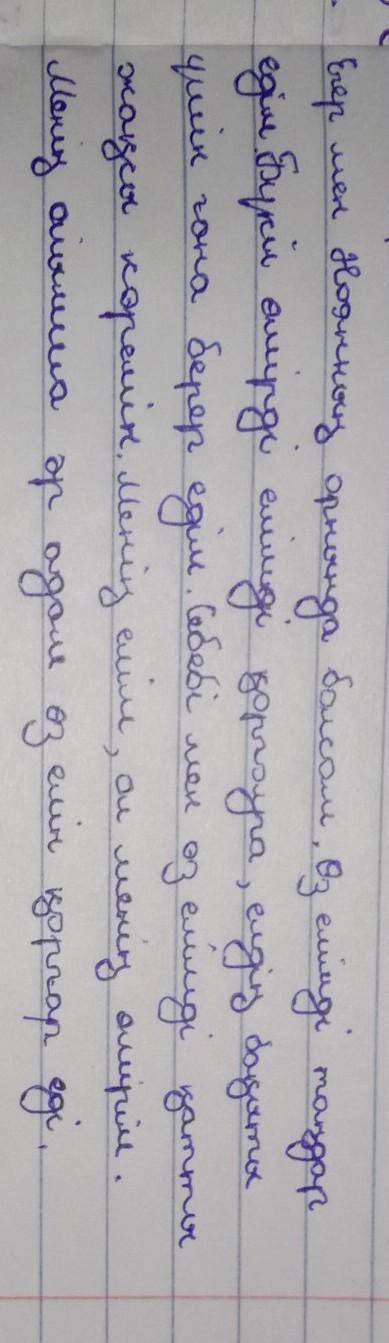 Егер мен Ноянның орнында болсам, Өз елімді таңдар
едім. Бүкіл өмірді елімді қорғауға, елдің бақыты
үшін ғана берер едім. Себебі мен өз елімді қатты
жақсы көремін. Менің елім, ол менің өмірім.
Менің ойымша әр адам өз елін қорғар еді.